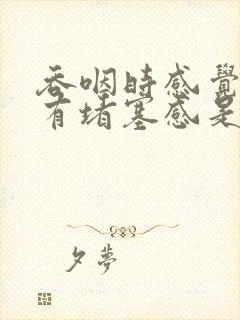 吞咽時感覺
有堵塞感是
夕夢